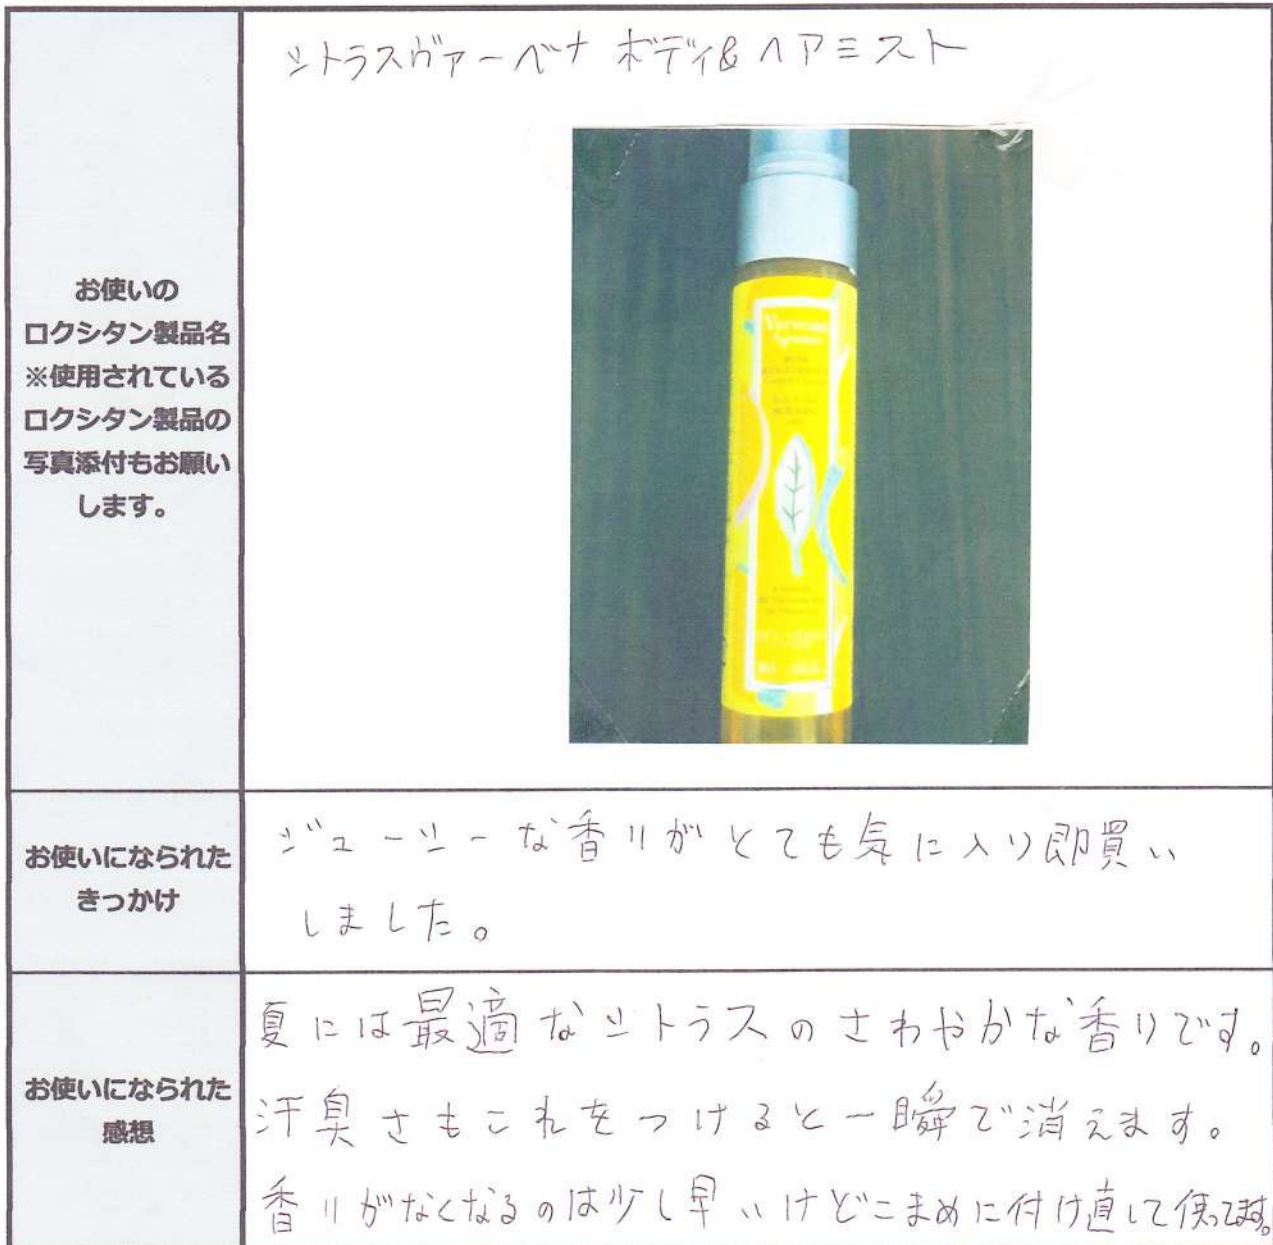 シトラスヴァーベナ ボディ&ヘアミスト
お使いの
ロクシタン製品名
※使用されている
ロクシタン製品の
写真添付もお願い
します。
Verveine
Agrumes
お使いになられた
きっかけ
ジューシーな香りがとても気に入り即買い
しました。
お使いになられた
感想
夏には最適なシトラスのさわやかな香りです。
汗臭さもこれをつけると一瞬で消えます。
香りがなくなるのは少し早いけどこまめに付け直して使ってます。